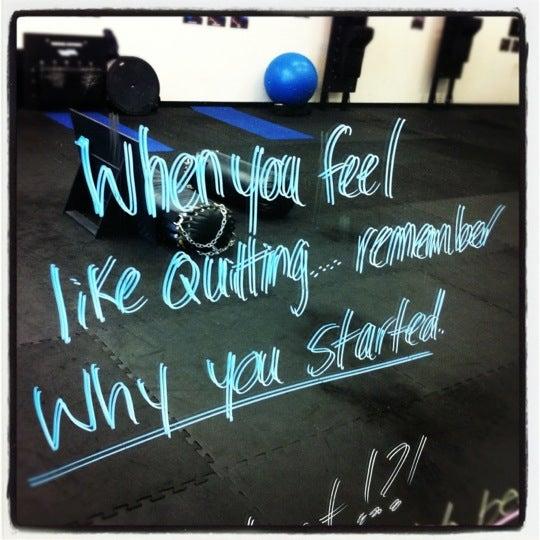 When you feel
like Quitting.... remember
Why you started.
!?!